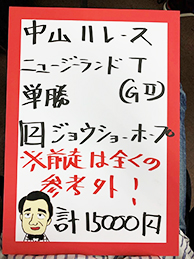 中山11レース
ニュージーランドT
単勝 (GII)
12 ジョウショーホープ
※前走は全くの
参考外!
計15000円